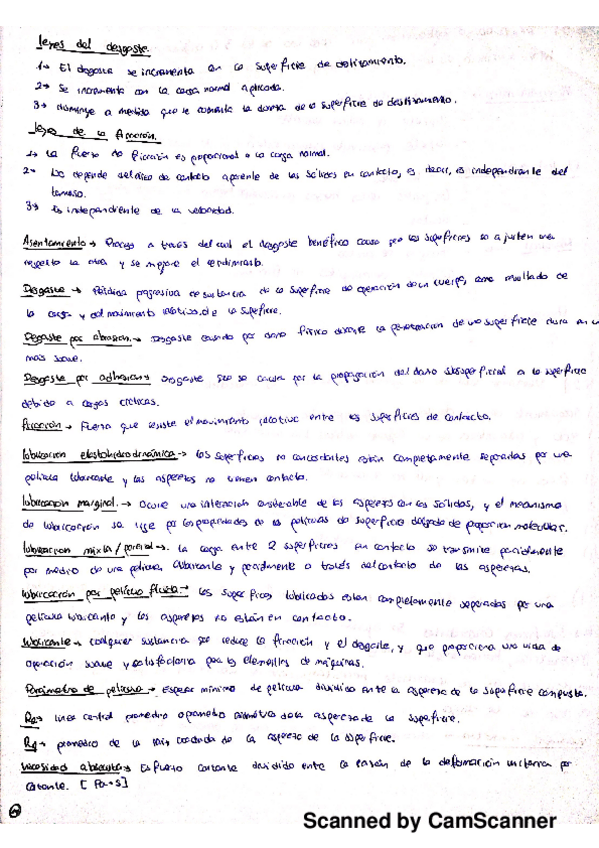 Leyes del desgaste.
1→ El desgaste se incrementa con la superficie de deslizamiento.
2→ Se incrementa con la carga normal aplicada.
3→ disminuye a medida que se aumenta la dureza de la superficie de deslizamiento.
Leyes de la fricción.
1→ La fuerza de fricción es proporcional a la carga normal.
2→ No depende del área de contacto aparente de los sólidos en contacto, es decir, es independiente del
tamaño.
3→ Es independiente de la velocidad.
Asentamiento → Proceso a través del cual el desgaste benéfico causa que las superficies se ajusten una
respecto la otra y se mejore el rendimiento.
Desgaste → Pérdida progresiva de sustancia de la superficie de operación de un cuerpo, como resultado de
la carga y del movimiento relativo de la superficie.
Desgaste por abrasión → Desgaste causado por daño físico durante la penetración de una superficie dura en un
más suave.
Desgaste por adhesión → Desgaste que se causa por la propagación del daño subsuperficial a la superficie
debido a cargas cíclicas.
Fricción → Fuerza que resiste el movimiento relativo entre las superficies de contacto.
Lubricación elastohidrodinámica → Las superficies no concordantes están completamente separadas por una
película lubricante y las asperezas no tienen contacto.
Lubricación marginal. → Ocurre una interacción considerable de las asperezas con los sólidos, y el mecanismo
de lubricación se rige por las propiedades de las películas de superficie delgada de proporción molecular.
Lubricación mixta/parcial → La carga entre 2 superficies en contacto se transmite parcialmente
por medio de una película lubricante y parcialmente a través del contacto de las asperezas.
Lubricación por película fluida → Las superficies lubricadas están completamente separadas por una
película lubricante y las asperezas no están en contacto.
Lubricante → cualquier sustancia que reduce la fricción y el desgaste, y que proporciona una vida de
operación suave y satisfactoria para los elementos de máquinas.
Parámetro de película → Espesor mínimo de película dividido entre la aspereza de la superficie compuesta.
Ra → línea central promedio o promedio aritmético de la aspereza de la superficie.
Rq → promedio de la raíz cuadrada de la aspereza de la superficie.
Viscosidad absoluta → Esfuerzo cortante dividido entre la razón de la deformación unitaria por
cortante. [Pa·s]
Scanned by CamScanner